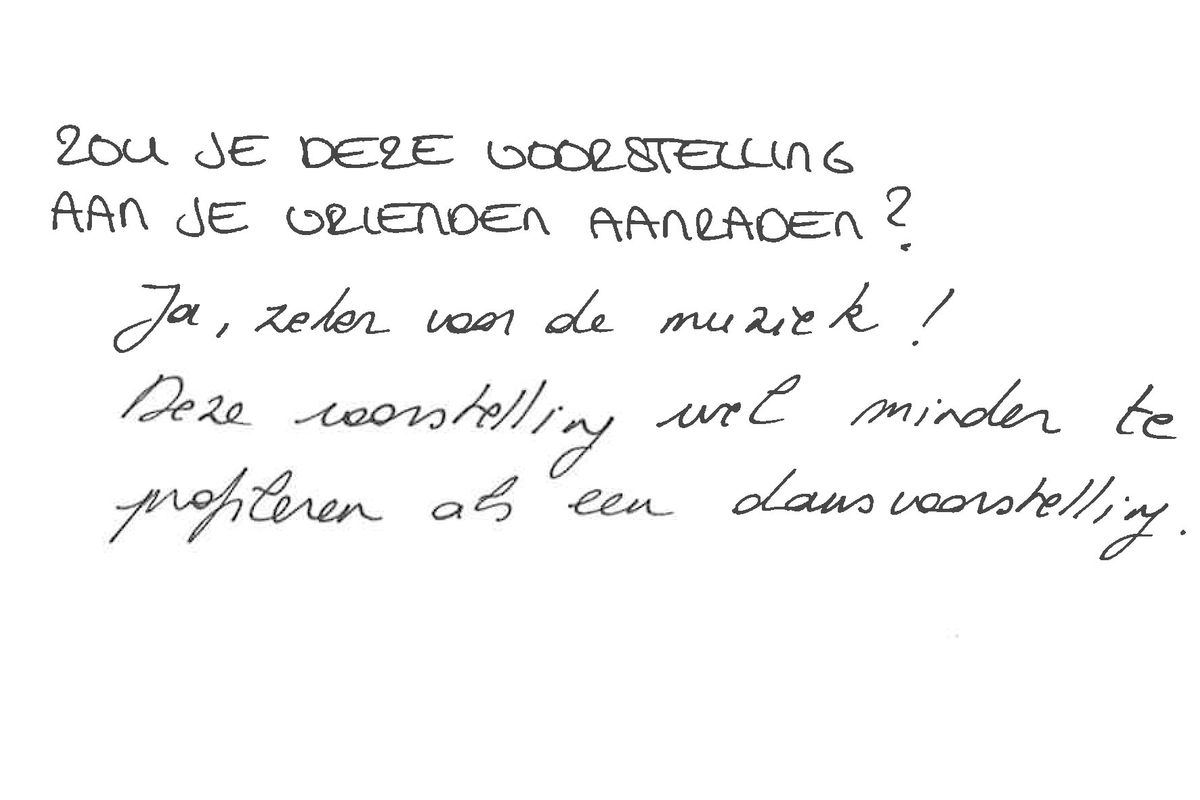 ZOU JE DEZE VOORSTELLING
AAN JE VRIENDEN AANRADEN?
Ja, zeker voor de muziek!
Deze voorstelling wel minder te
profileren als een dansvoorstelling.